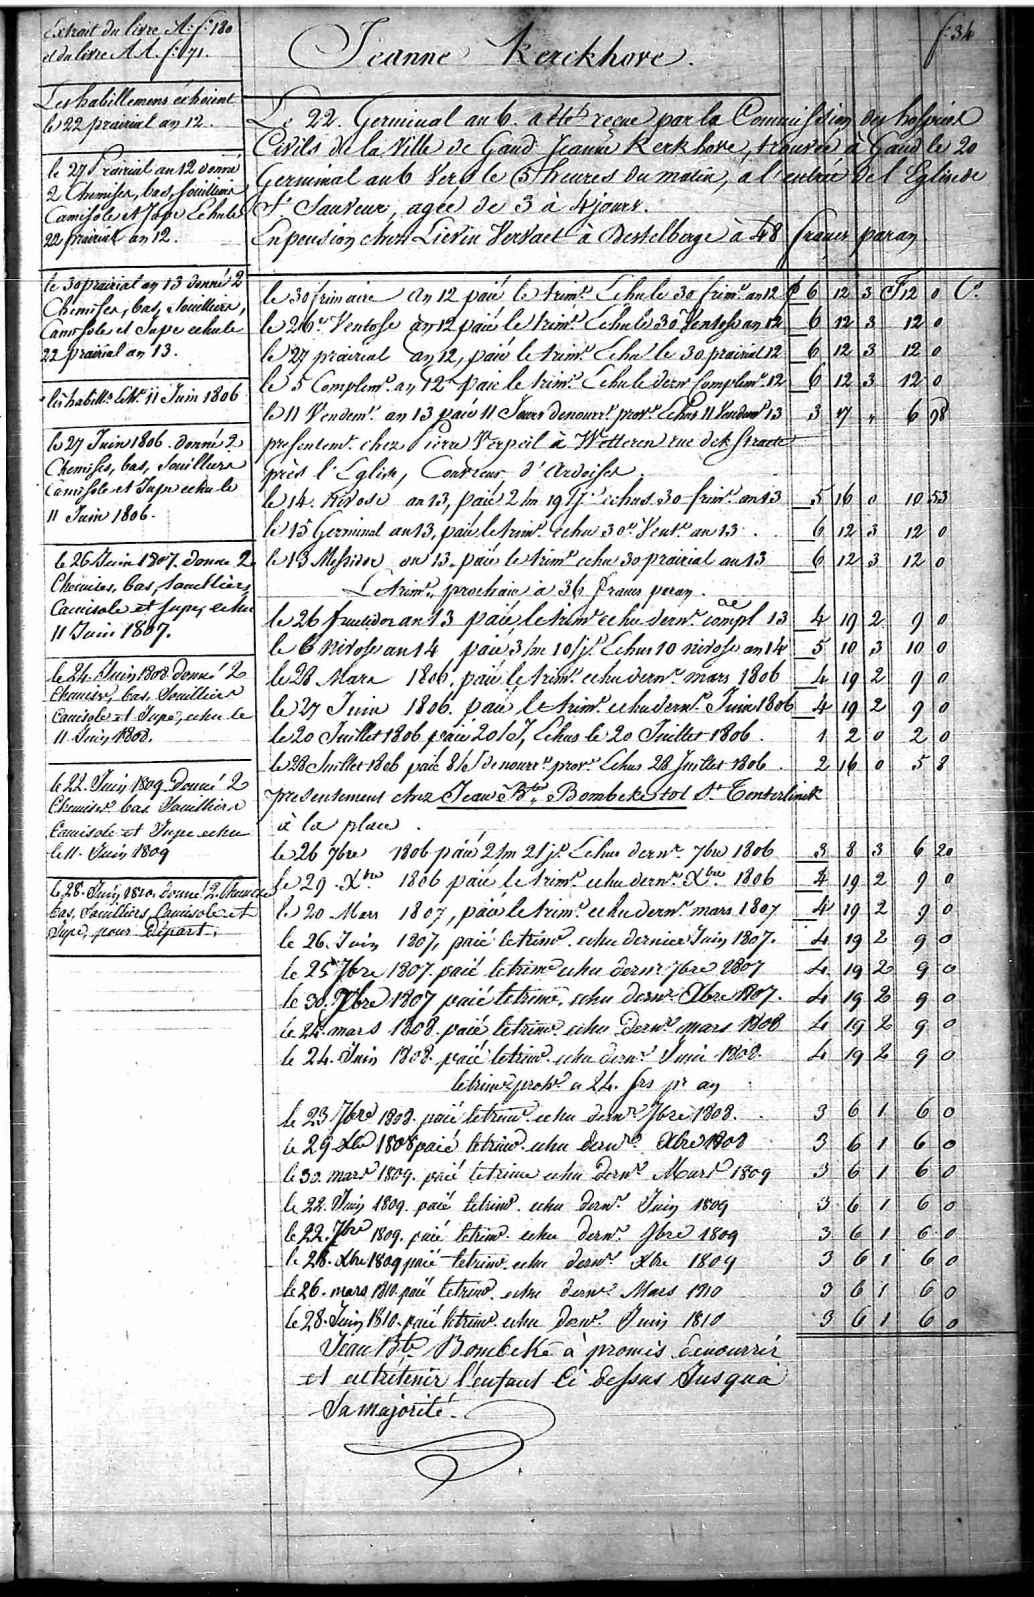 f: 34
Jeanne Kerckhove.
Extrait du livre A: f: 180
et du livre AA. f: 71.
Les habillemens échoient
le 22 prairial an 12.
le 27 Prairial an 12 donné
2 Chemises, bas, souilliers
Camisole et Jupe Echu le
22 prairial an 12.
le 30 prairial an 13 donné 2
Chemises, bas, Souilliers,
Camisole et Jupe echu le
22 prairial an 13.
les habill. 11 Juin 1806
le 27 Juin 1806. donné 2
Chemises, bas, Souilliers
Camisole et Jupe echu le
11 Juin 1806.
le 26 Juin 1807. donné 2
Chemises, bas, souilliers
Camisole et Jupe, echu
11 Juin 1807.
le 24. Juin 1808. donné 2
Chemises, bas, Souilliers
Camisole et Jupe, echu le
11 Juin 1808.
le 22. Juin 1809. Donné 2
Chemises bas. Souilliers
Camisole et Jupe echu
le 11. Juin 1809
le 28. Juin 1810. donné 2. Chemises
bas, Souilliers Camisole et
Jupe, pour Départ.
Le 22. Germinal an 6. a été reçue par la Commission des hospices
Civils de la Ville de Gand Jeanne Kerkhove, trouvée à Gand le 20
Germinal an 6 Vers le 5 heures du matin, a l'entrée del Eglise de
St. Sauveur, agée de 3 à 4 jours.
En pension chez Lievin Vervaet à Destelberge à 48 francs par an
le 30 frimaire an 12 paié le trimre. Echu le 30 frimre. an 12 £ 6 12 3 F 12 0 Cs.
le 26 Ventose an 12 paié le trimre. Echu le 30 Ventose an 12 6 12 3 12 0
le 27 prairial an 12, paié le trimre. Echu le 30 prairial 12 6 12 3 12 0
le 5 Complemre. an 12 paié le trimre. Echu le dernr. Complemre. 12 6 12 3 12 0
le 11 Vendemre. an 13 paié 11 Jours de nourre. provre. Echus 11 Vendemre 13 3 7 " 6 98
presentemt. chez Pierre Verspeil à Wetteren rue dek Straete
près l'Eglise, Couvreur d'Ardoises.
le 14. Nivose an 13, paié 2/m 19/Js. echus 30 frimre. an 13 5 16 0 10 53
le 15 Germinal an 13, paié le trimre. echu 30e. Ventse. an 13 6 12 3 12 0
le 13 Messidor an 13. paié le trimre. echu 30 prairial an 13 6 12 3 12 0
Le trimre. prochain à 36 francs par an.
le 26 fructidor an 13 paié le trimre echu dernr. compl re 13 4 19 2 9 0
le 6 Nivose an 14 paié 3/m 10/js. Echus 10 nivose an 14 5 10 3 10 0
le 28 Mars 1806. paié le trimre. echu dernr. mars 1806 4 19 2 9 0
le 27 Juin 1806. paié le trimre. echu dernr. Juin 1806 4 19 2 9 0
le 20 Juillet 1806 paié 20/J, Echus le 20 Juillet 1806. 1 2 0 2 0
le 28 Juillet 1806 paié 8/J de nourre. provre. Echus 28 Juillet 1806. 2 16 0 5 8
presentement chez Jean Bte. Bombeke tot St. Tenterlinck
à la place.
le 26 7bre 1806 paié 2/m 2/js. Echus dernr. 7bre 1806 3 8 3 6 20
le 29. Xbre 1806 paié le trimre. echu dernr. Xbre 1806 4 19 2 9 0
le 20 Mars 1807, paié le trimre. echu dernr. mars 1807 4 19 2 9 0
le 26. Juin 1807, paié le trimre. echu dernier Juin 1807. 4 19 2 9 0
le 25 7bre 1807. paié le trimre echu dernr. 7bre 1807 4 19 2 9 0
le 30. Xbre 1807 paié le trimre. echu dernr. Xbre 1807. 4 19 2 9 0
le 24. mars 1808. paié le trimre. echu dernr. mars 1808 4 19 2 9 0
le 24. Juin 1808. paié le trimre. echu dernr. Juin 1808. 4 19 2 9 0
le trimre proche. a 24. frs pr an
le 23 7bre 1808. paié le trimre. echu dernr. 7bre 1808. 3 6 1 6 0
le 29 Xbre 1808 paié le trimre. echu dernr. Xbre 1808 3 6 1 6 0
le 30. mars 1809. paié le trimre echu dernr. Mars 1809 3 6 1 6 0
le 22. Juin 1809. paié le trimre. echu dernr. Juin 1809 3 6 1 6 0
le 22. 7bre 1809. paié le trimre. echu dernr. 7bre 1809 3 6 1 6 0
le 28. Xbre 1809 paié le trimre. echu dernr. Xbre 1809 3 6 1 6 0
le 26. mars 1810. paié le trimre. echu dernr. Mars 1810 3 6 1 6 0
le 28. Juin 1810. paié le trimre. echu dernr. Juin 1810 3 6 1 6 0
Jean Bte. Bombeke à promis denourrir
et entretenir l'enfant Ci dessus Jusqua
Sa majorité.